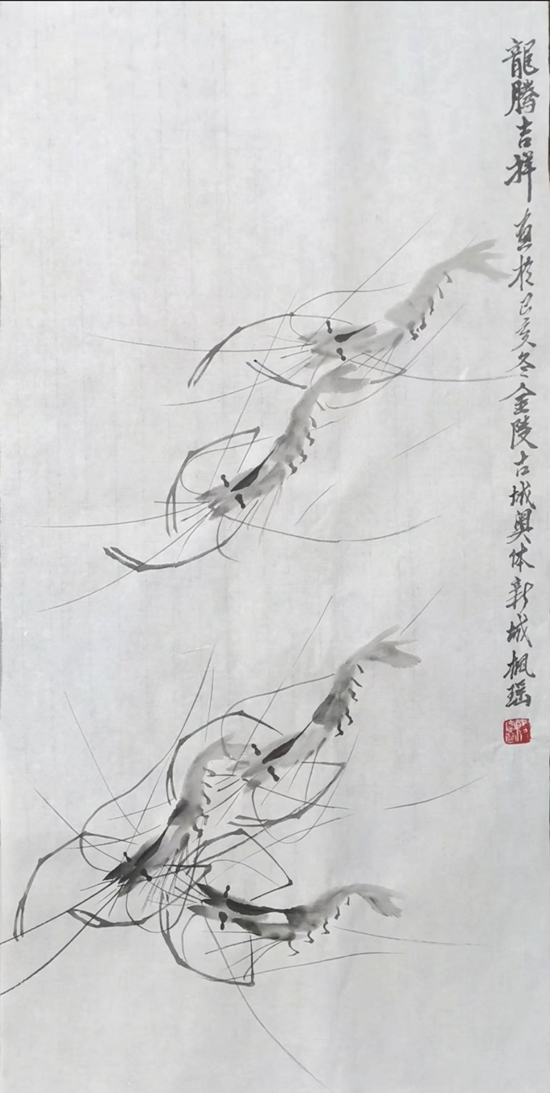 龍腾吉祥 画於己亥冬金陵古城奥体新城枫瑶